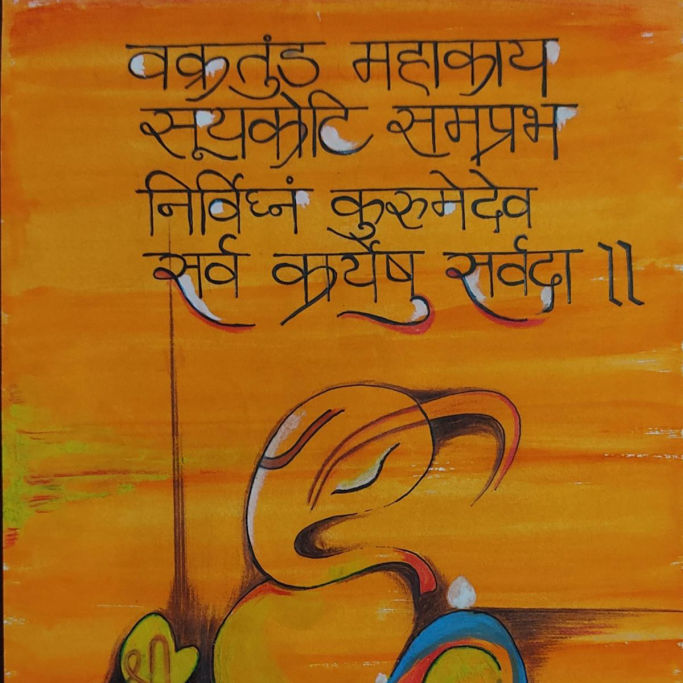 वक्रतुंड महाकाय
सूयकोटि समप्रभ
निर्विघ्नं कुरुमेदेव
सर्व कार्येषु सर्वदा ॥
श्री